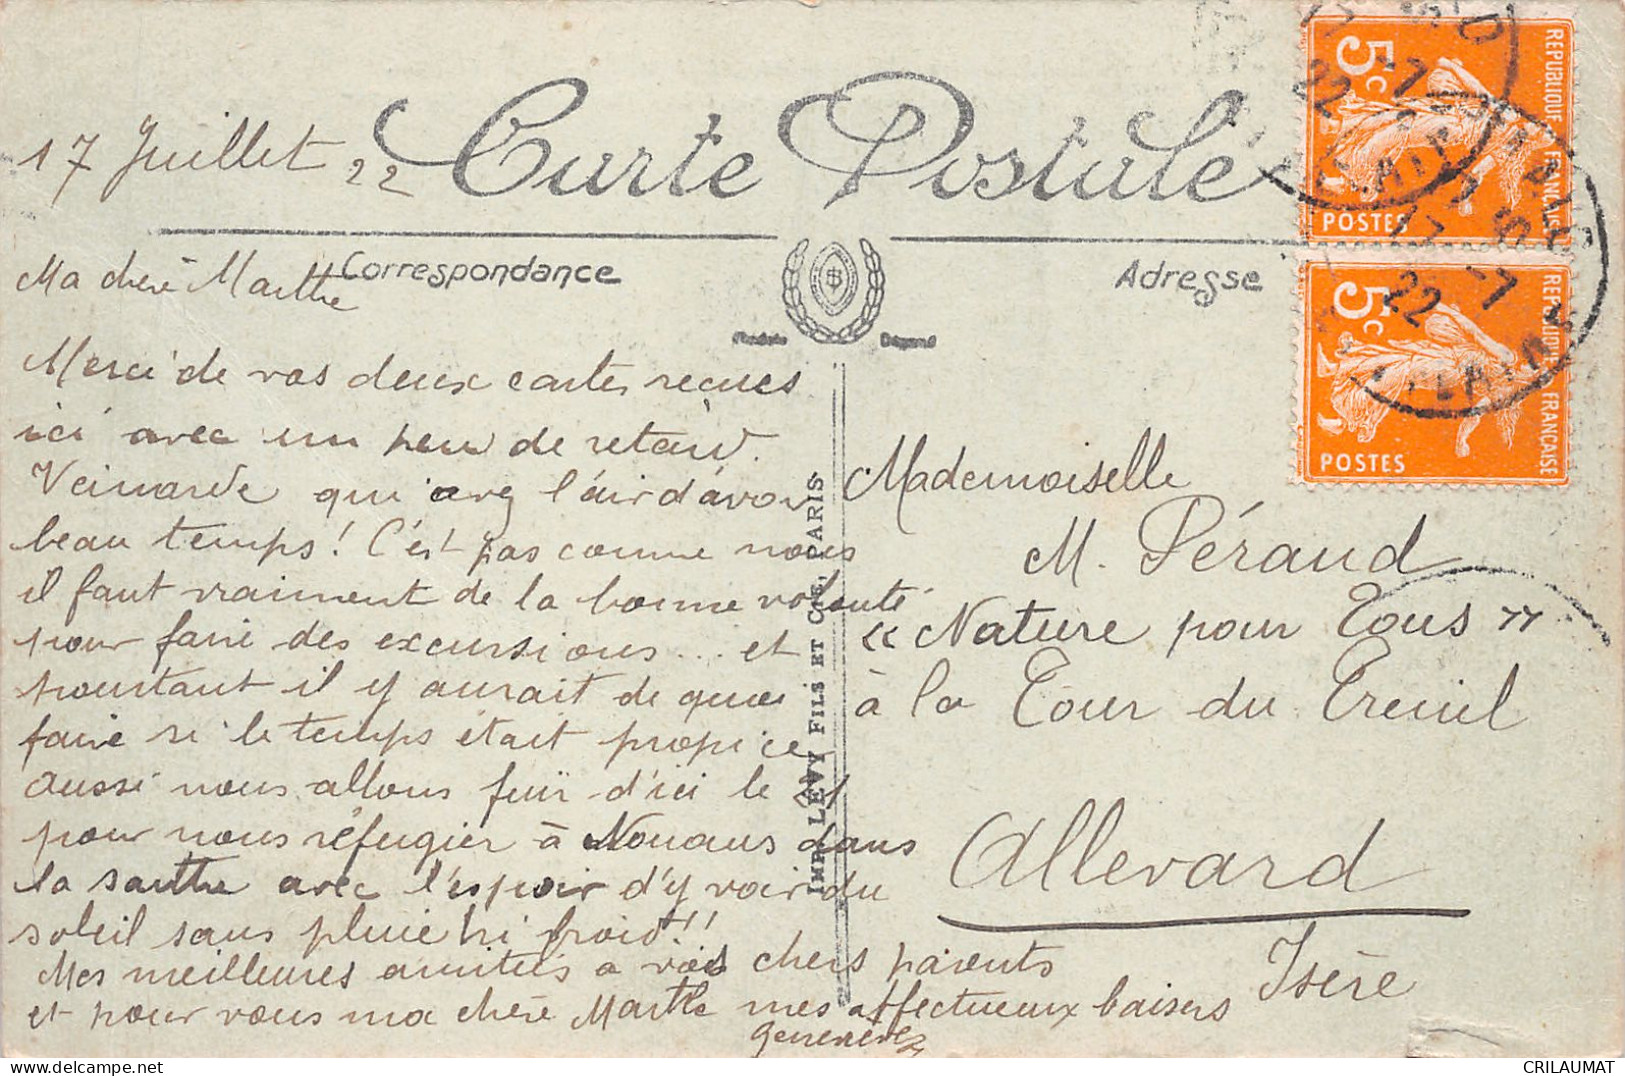 17 Juillet 22
Carte Postale
Correspondance
Adresse
Ma chère Marthe
Merci de vos deux cartes recues
ici avec un peu de retard.
Veinarde qui avez l'air d'avoir
beau temps! C'est pas comme nous
il faut vraiment de la bonne volonté
pour faire des excursions... et
pourtant il y aurait de quoi
faire si le temps était propice
aussi nous allons fuir d'ici le 21
pour nous réfugier à Nouans dans
la Sarthe avec l'espoir d'y voir du
soleil sans pluie ni froid!!
Mes meilleures amitiés a vos chers parents
et pour vous ma chère Marthe mes affectueux baisers
Geneviève
IMP. LEVY FILS ET CIE, PARIS
Mademoiselle
M. Péraud
« Nature pour Tous »
à la Tour du Treuil
Allevard
Isère
REPUBLIQUE FRANÇAISE
5c
POSTES
REPUBLIQUE FRANÇAISE
5c
POSTES
17 -7
22
-7
22
CRILAUMAT